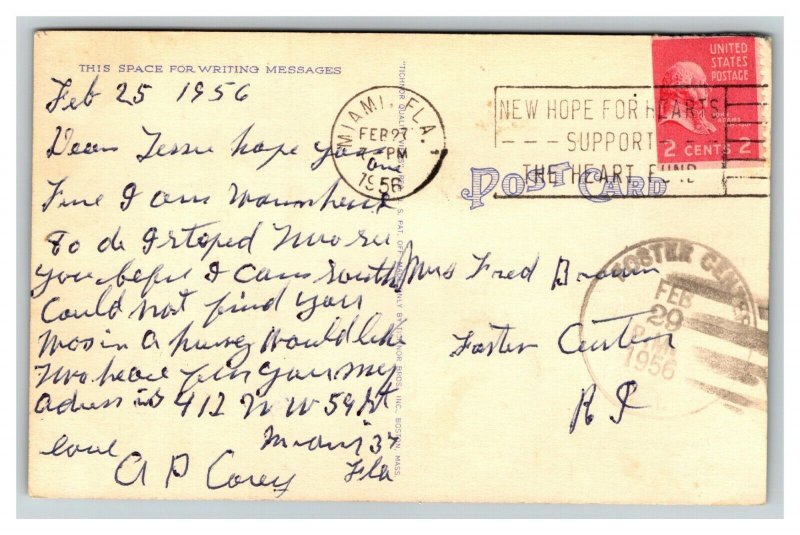 THIS SPACE FOR WRITING MESSAGES
Feb 25 1956
Dear Jessie hope you
are
Fine I am
To de I stoped
you befor I cam south
Could not find you
was in a hurey would like
hear from you my
adress is 412 N W 59 St
Miami 37
love Fla
A P Corey
"TICHNOR QUALITY VIEWS," REG. U. S. PAT. OFF. MADE ONLY BY TICHNOR BROS. INC., BOSTON, MASS.
MIAMI, FLA. 1
FEB 27
PM
1956
NEW HOPE FOR HEARTS
SUPPORT
THE HEART FUND
UNITED
STATES
POSTAGE
JOHN
ADAMS
2 CENTS 2
POST CARD
Mrs Fred Brown
Foster Center
R I
FOSTER CENTER
FEB
29
1956